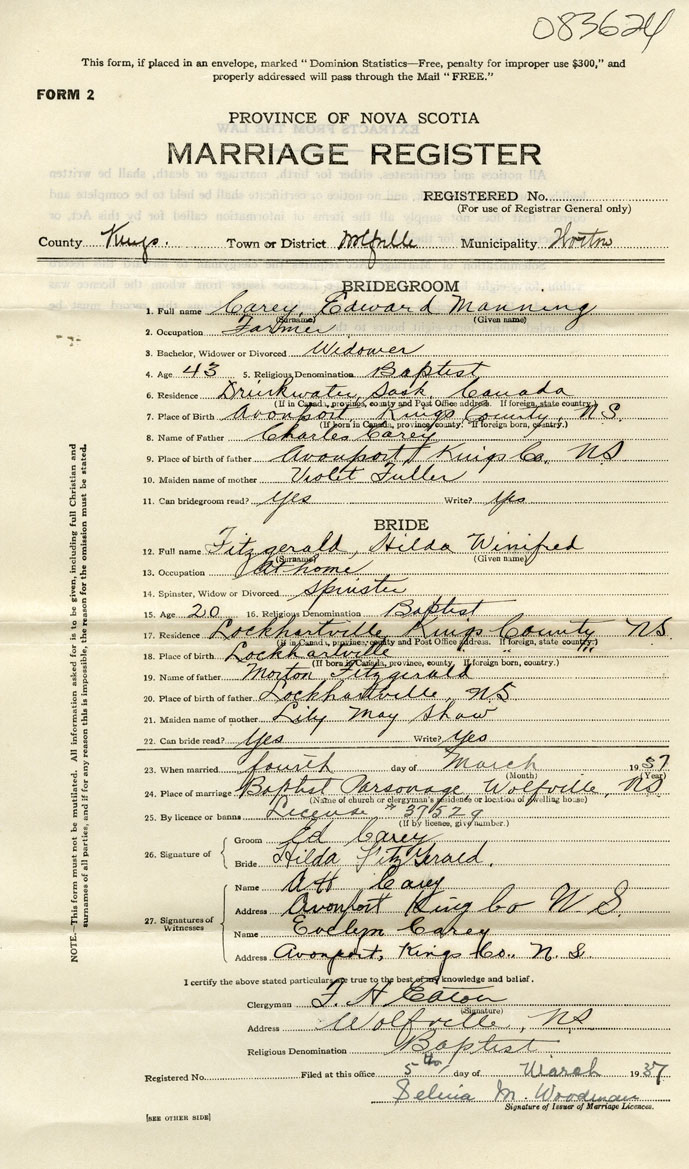 083624
This form, if placed in an envelope, marked "Dominion Statistics—Free, penalty for improper use $300," and
properly addressed will pass through the Mail "FREE."
FORM 2
PROVINCE OF NOVA SCOTIA
MARRIAGE REGISTER
REGISTERED No.
(For use of Registrar General only)
County Kings. Town or District Wolfville Municipality Horton
BRIDEGROOM
1. Full name Carey, Edward Manning
(Surname) (Given name)
2. Occupation Farmer
3. Bachelor, Widower or Divorced Widower
4. Age 43 5. Religious Denomination Baptist
6. Residence Drinkwater, Sask, Canada
(If in Canada, province, county and Post Office address. If foreign, state country.)
7. Place of Birth Avonport, Kings County, N.S.
(If born in Canada, province, county. If foreign born, country.)
8. Name of Father Charles Carey
9. Place of birth of father Avonport, Kings Co., NS
10. Maiden name of mother Violet Fuller
11. Can bridegroom read? yes Write? yes
BRIDE
12. Full name Fitzgerald, Hilda Winifred
(Surname) (Given name)
13. Occupation At home
14. Spinster, Widow or Divorced Spinster
15. Age 20 16. Religious Denomination Baptist
17. Residence Lockhartville Kings County NS.
(If in Canada, province, county and Post Office address. If foreign, state country.)
18. Place of birth Lockhartville " " "
(If born in Canada, province, county. If foreign born, country.)
19. Name of father Morton Fitzgerald
20. Place of birth of father Lockhartville, NS
21. Maiden name of mother Lily May Shaw
22. Can bride read? Yes Write? Yes
23. When married fourth day of March 1937
(Month) (Year)
24. Place of marriage Baptist Parsonage, Wolfville, NS
(Name of church or clergyman's residence or location of dwelling house)
25. By licence or banns License # 37529
(If by licence, give number.)
26. Signature of Groom Ed Carey
Bride Hilda FitzGerald.
27. Signatures of Witnesses
Name A H Carey
Address Avonport King Co N.S.
Name Evelyn Carey
Address Avonport, Kings Co., N.S.
I certify the above stated particulars are true to the best of my knowledge and belief.
Clergyman F. H Eaton
(Signature)
Address Wolfville, NS
Religious Denomination Baptist
Registered No. Filed at this office 5th day of March 1937
Selina M. Woodman
Signature of Issuer of Marriage Licences.
[SEE OTHER SIDE]
NOTE.—This form must not be mutilated. All information asked for is to be given, including full Christian and
surnames of all parties, and if for any reason this is impossible, the reason for the omission must be stated.